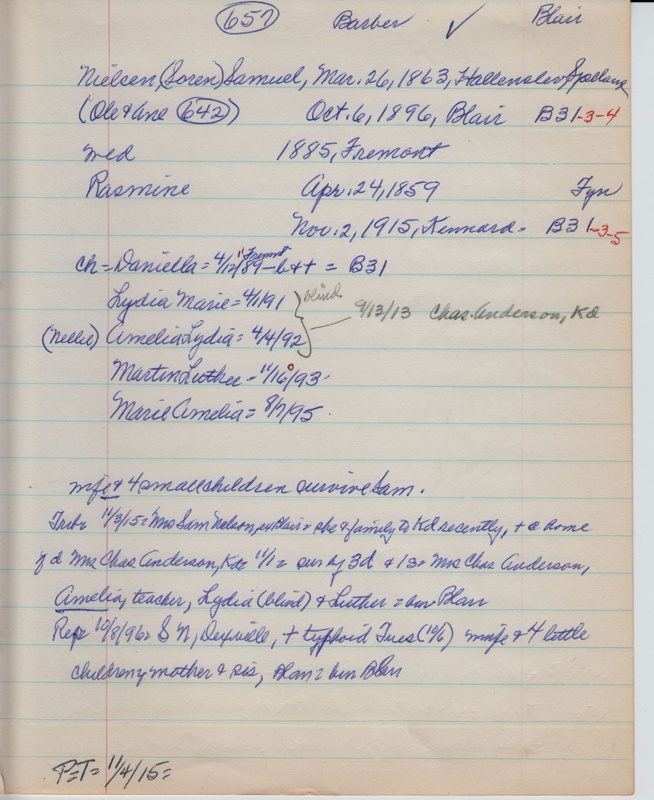 657 Barber ✓ Blair
Nielsen, (Soren) Samuel, Mar. 26, 1863, Hallenslev, Sjaelland
(Ole & Ane 642) Oct. 6, 1896, Blair B31-3-4
med 1885, Fremont
Rasmine Apr. 24, 1859 Fyn
Nov. 2, 1915, Kennard = B31-3-5
Ch = Daniella = 4/12/89 - b & + = B31
Fremont
Lydia Marie = 4/1/91
blind
9/13/13 Chas. Anderson, Kd
(Nellie) Amelia Lydia = 4/4/92
Martin Luther = 11/16/93
Marie Amelia = 8/7/95
wife & 4 small children survive Sam.
Trib = 11/3/15 = Mrs Sam Nelson, ex Blair = she & family to Kd recently, + @ home
of d Mrs Chas Anderson, Kd = 11/1 = sur by 3d & 1s = Mrs Chas Anderson,
Amelia, teacher, Lydia (blind) & Luther = bur Blair
Rep = 10/8/96 = S N, Dexville, + typhoid Tues (10/6) wife & 4 little
children, mother & sis, Blair = bur Blair
P=T= 11/4/15 =